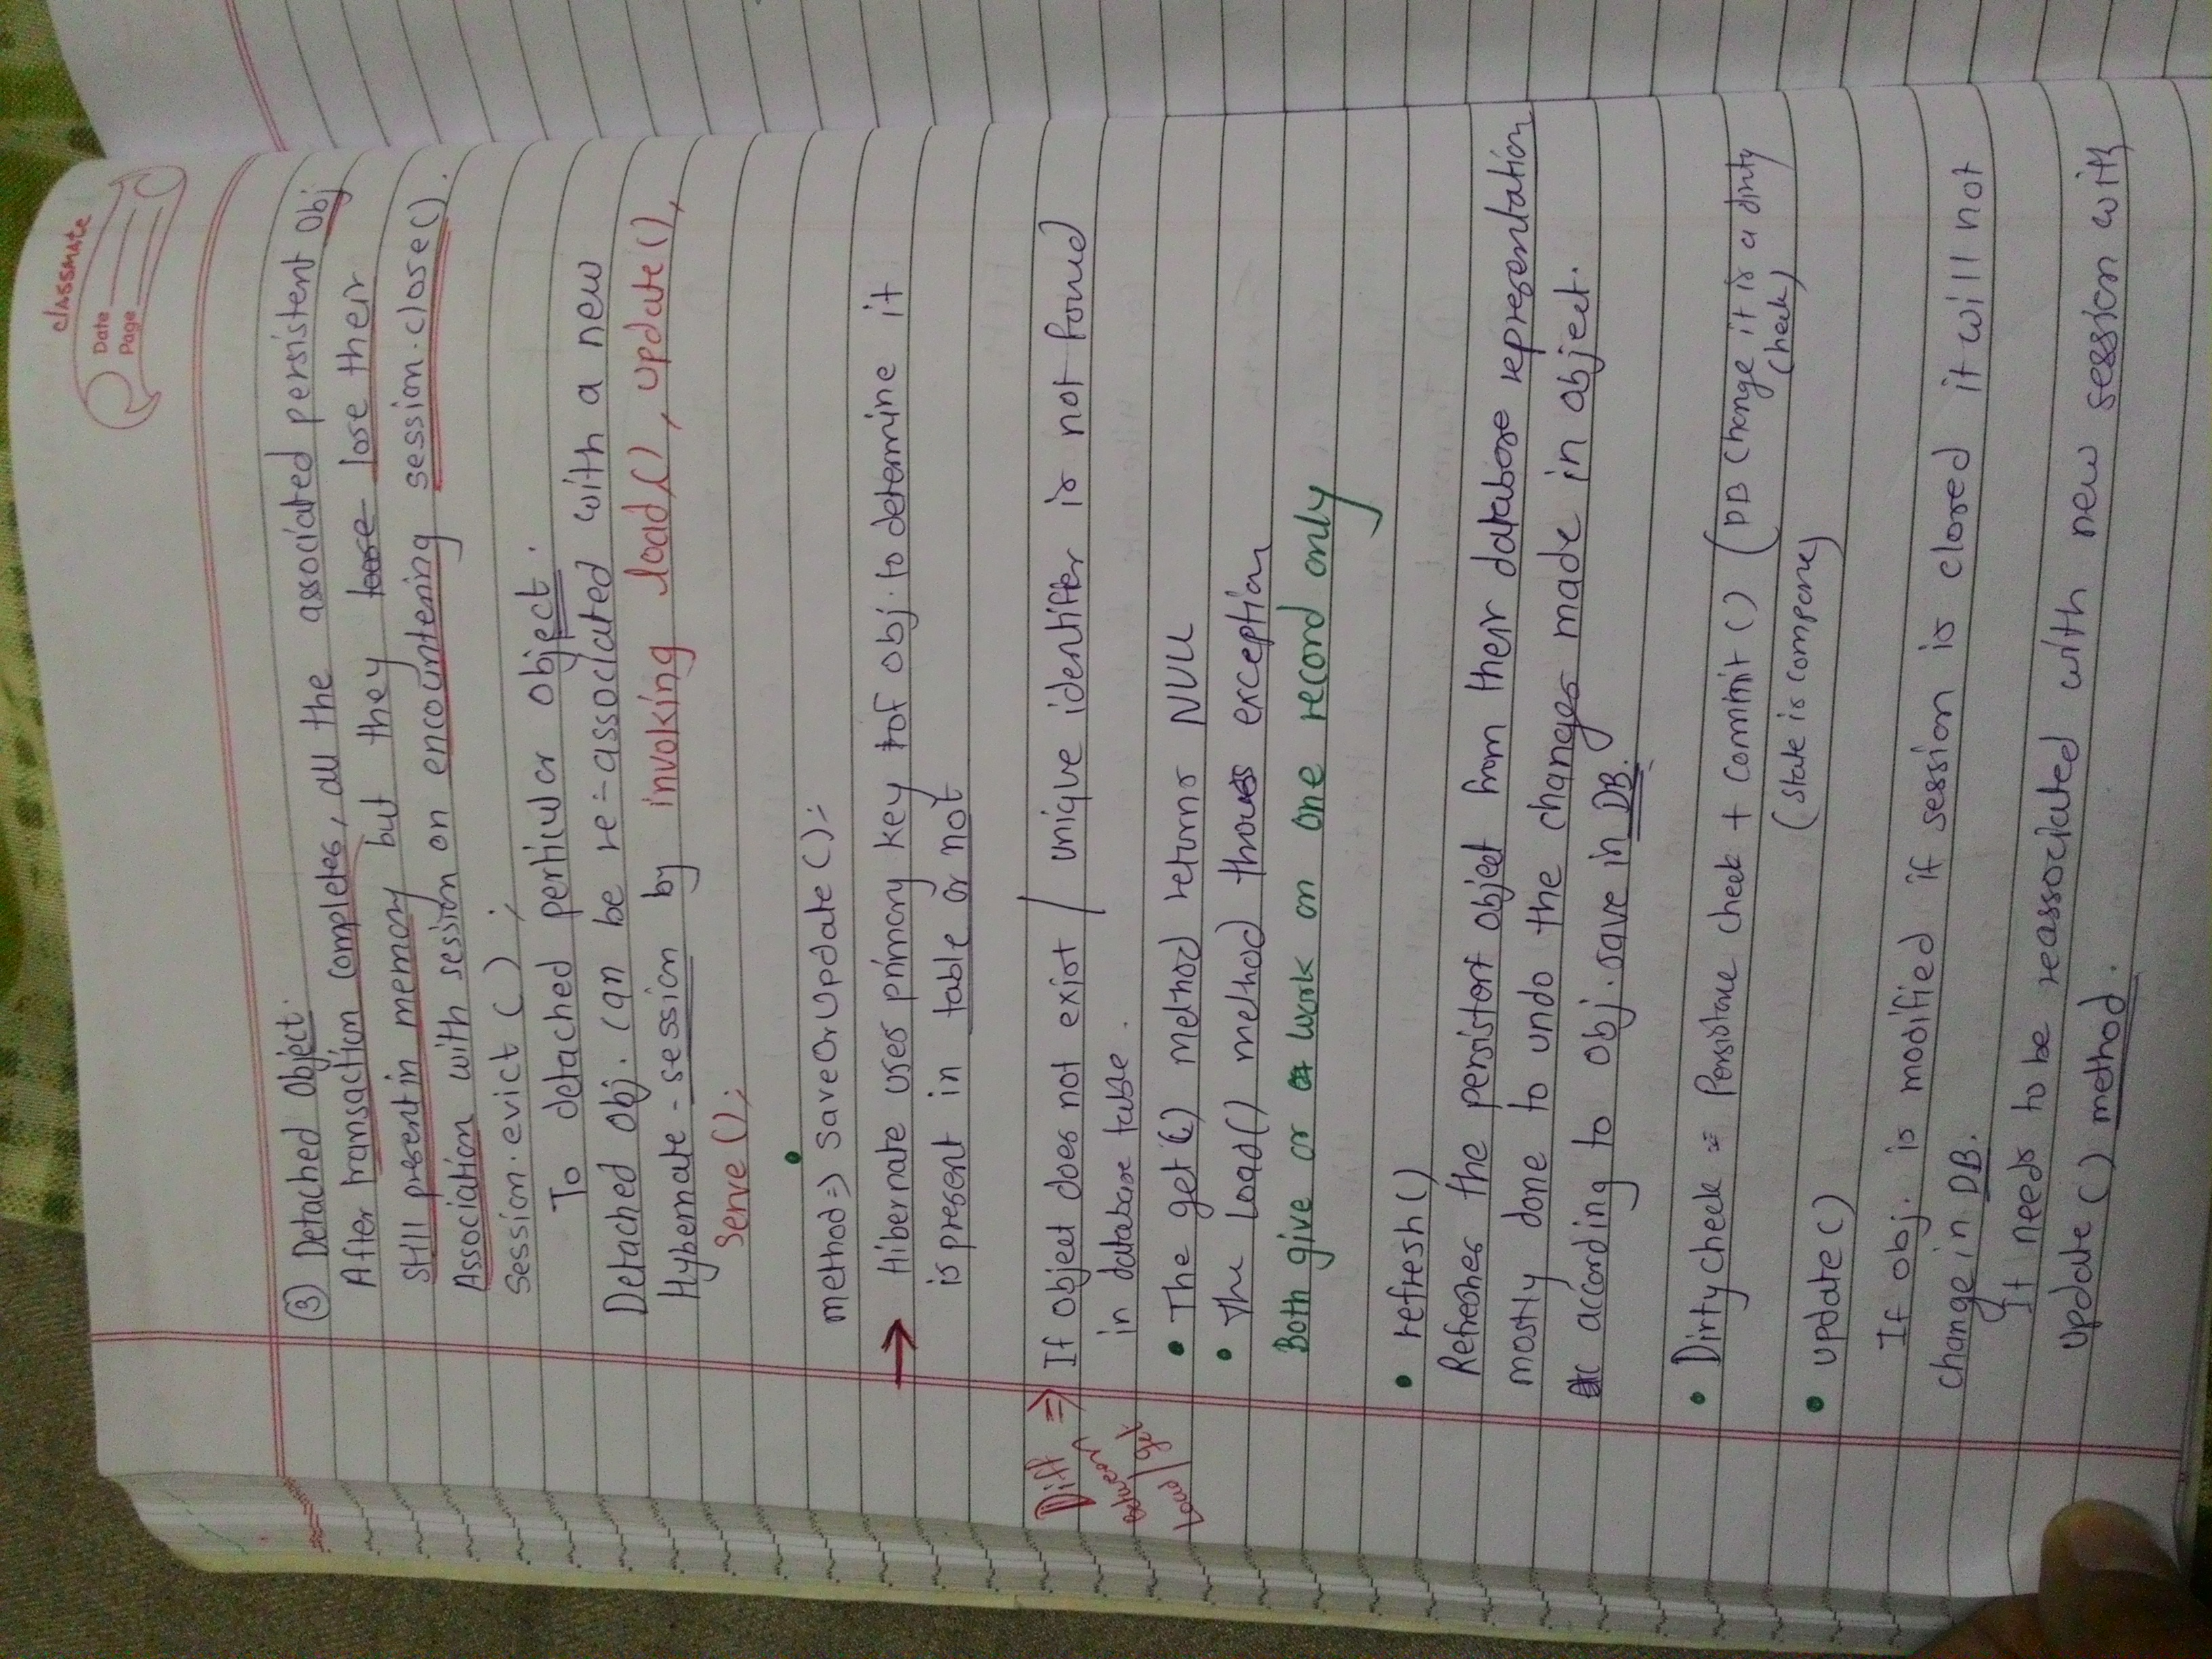 classmate
Date
Page
③ Detached Object.
After transaction completes, all the associated persistent obj
still present in memory but they loose lose their
Association with session on encountering session.close().
Session.evict ( ) ;
To detached perticular object.
Detached obj. can be re-associated with a new
Hybernate - session by invoking load(), update(),
Serve ();
method => SaveOrUpdate ();
→ Hibernate uses primary key of obj. to determine it
is present in table or not
Diff Between Load/get
⇒ If object does not exist / unique identifier is not found
in database table.
• The get () method returns NULL
• The Load() method throws exception
Both give or work on one record only
• refresh ()
Refreshes the persistent object from their database representation
mostly done to undo the changes made in object.
according to obj. save in DB.
• Dirty check = Persistance check + commit () (DB Change it is a dirty
check)
(state is compare)
• update ()
If obj. is modified if session is closed it will not
change in DB.
It needs to be reassociated with new session with
update () method.